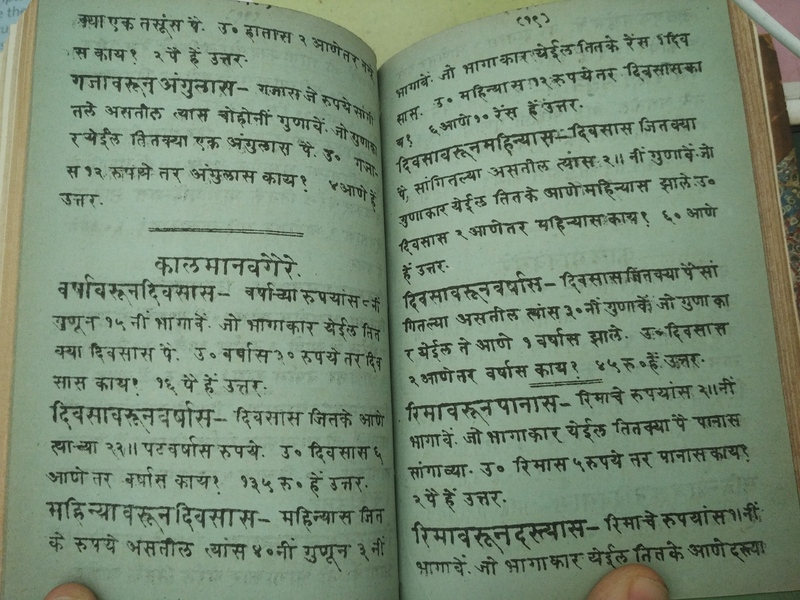 क्या एक तसूंस पै. उ० हातास २ आणेतर
स काय? २ पै हें उत्तर.
गजावरून अंगुळास— गजास जे रुपये सांगि
तले असतील त्यास चोहोनीं गुणावें. जो गुणाका
र येईल तितक्या एक अंगुळास पै. उ० गजा-
स १२ रुपये तर अंगुळास काय? ४ आणे हें
उत्तर.
कालमानवगैरे.
वर्षावरून दिवसास— वर्षाच्या रुपयांस ८ नीं
गुणून १५ नीं भागावें. जो भागाकार येईल तित
क्या दिवसास पै. उ० वर्षास ३० रुपये तर दिव
सास काय? १६ पै हें उत्तर.
दिवसावरून वर्षास— दिवसास जितके आणे
त्याच्या २२॥ पट वर्षास रुपये. उ० दिवसास ६
आणे तर वर्षास काय? १३५ रु० हें उत्तर.
महिन्यावरून दिवसास— महिन्यास जित
के रुपये असतील त्यांस ४० नीं गुणून ३ नीं
(१९)
भागावें. जो भागाकार येईल तितके रेंस १ दिव
सास. उ० महिन्यास १२ रुपये तर दिवसास का
य? ६ आणे १० रेंस हें उत्तर.
दिवसावरून महिन्यास— दिवसास जितक्या
पै, सांगितल्या असतील त्यांस २॥ नीं गुणावें. जो
गुणाकार येईल तितके आणे महिन्यास झाले. उ०
दिवसास २ आणे तर महिन्यास काय? ६० आणे
हें उत्तर.
दिवसावरून वर्षास— दिवसास जितक्या पै सां
गितल्या असतील त्यांस ३० नीं गुणावें. जो गुणाका
र येईल ते आणे १ वर्षास झाले. उ० दिवसास
२ आणे तर वर्षास काय? ४५ रु० हें उत्तर.
रिमावरून पानास— रिमाचे रुपयांस २॥ नीं
भागावें. जो भागाकार येईल तितक्या पै पानास
सांगाव्या. उ० रिमास ५ रुपये तर पानास काय?
२ पै हें उत्तर.
रिमावरून दस्त्यास— रिमाचे रुपयांस १। नीं
भागावें. जो भागाकार येईल तितके आणे दस्त्या